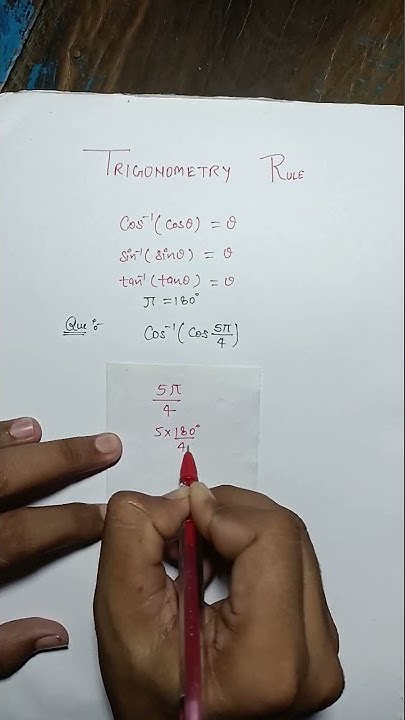 TRIGONOMETRY RULE
Cos⁻¹(Cosθ) = θ
sin⁻¹(sinθ) = θ
tan⁻¹(tanθ) = θ
π = 180°
Que :- Cos⁻¹(Cos 5π/4)
5π/4
5 × 180°/4